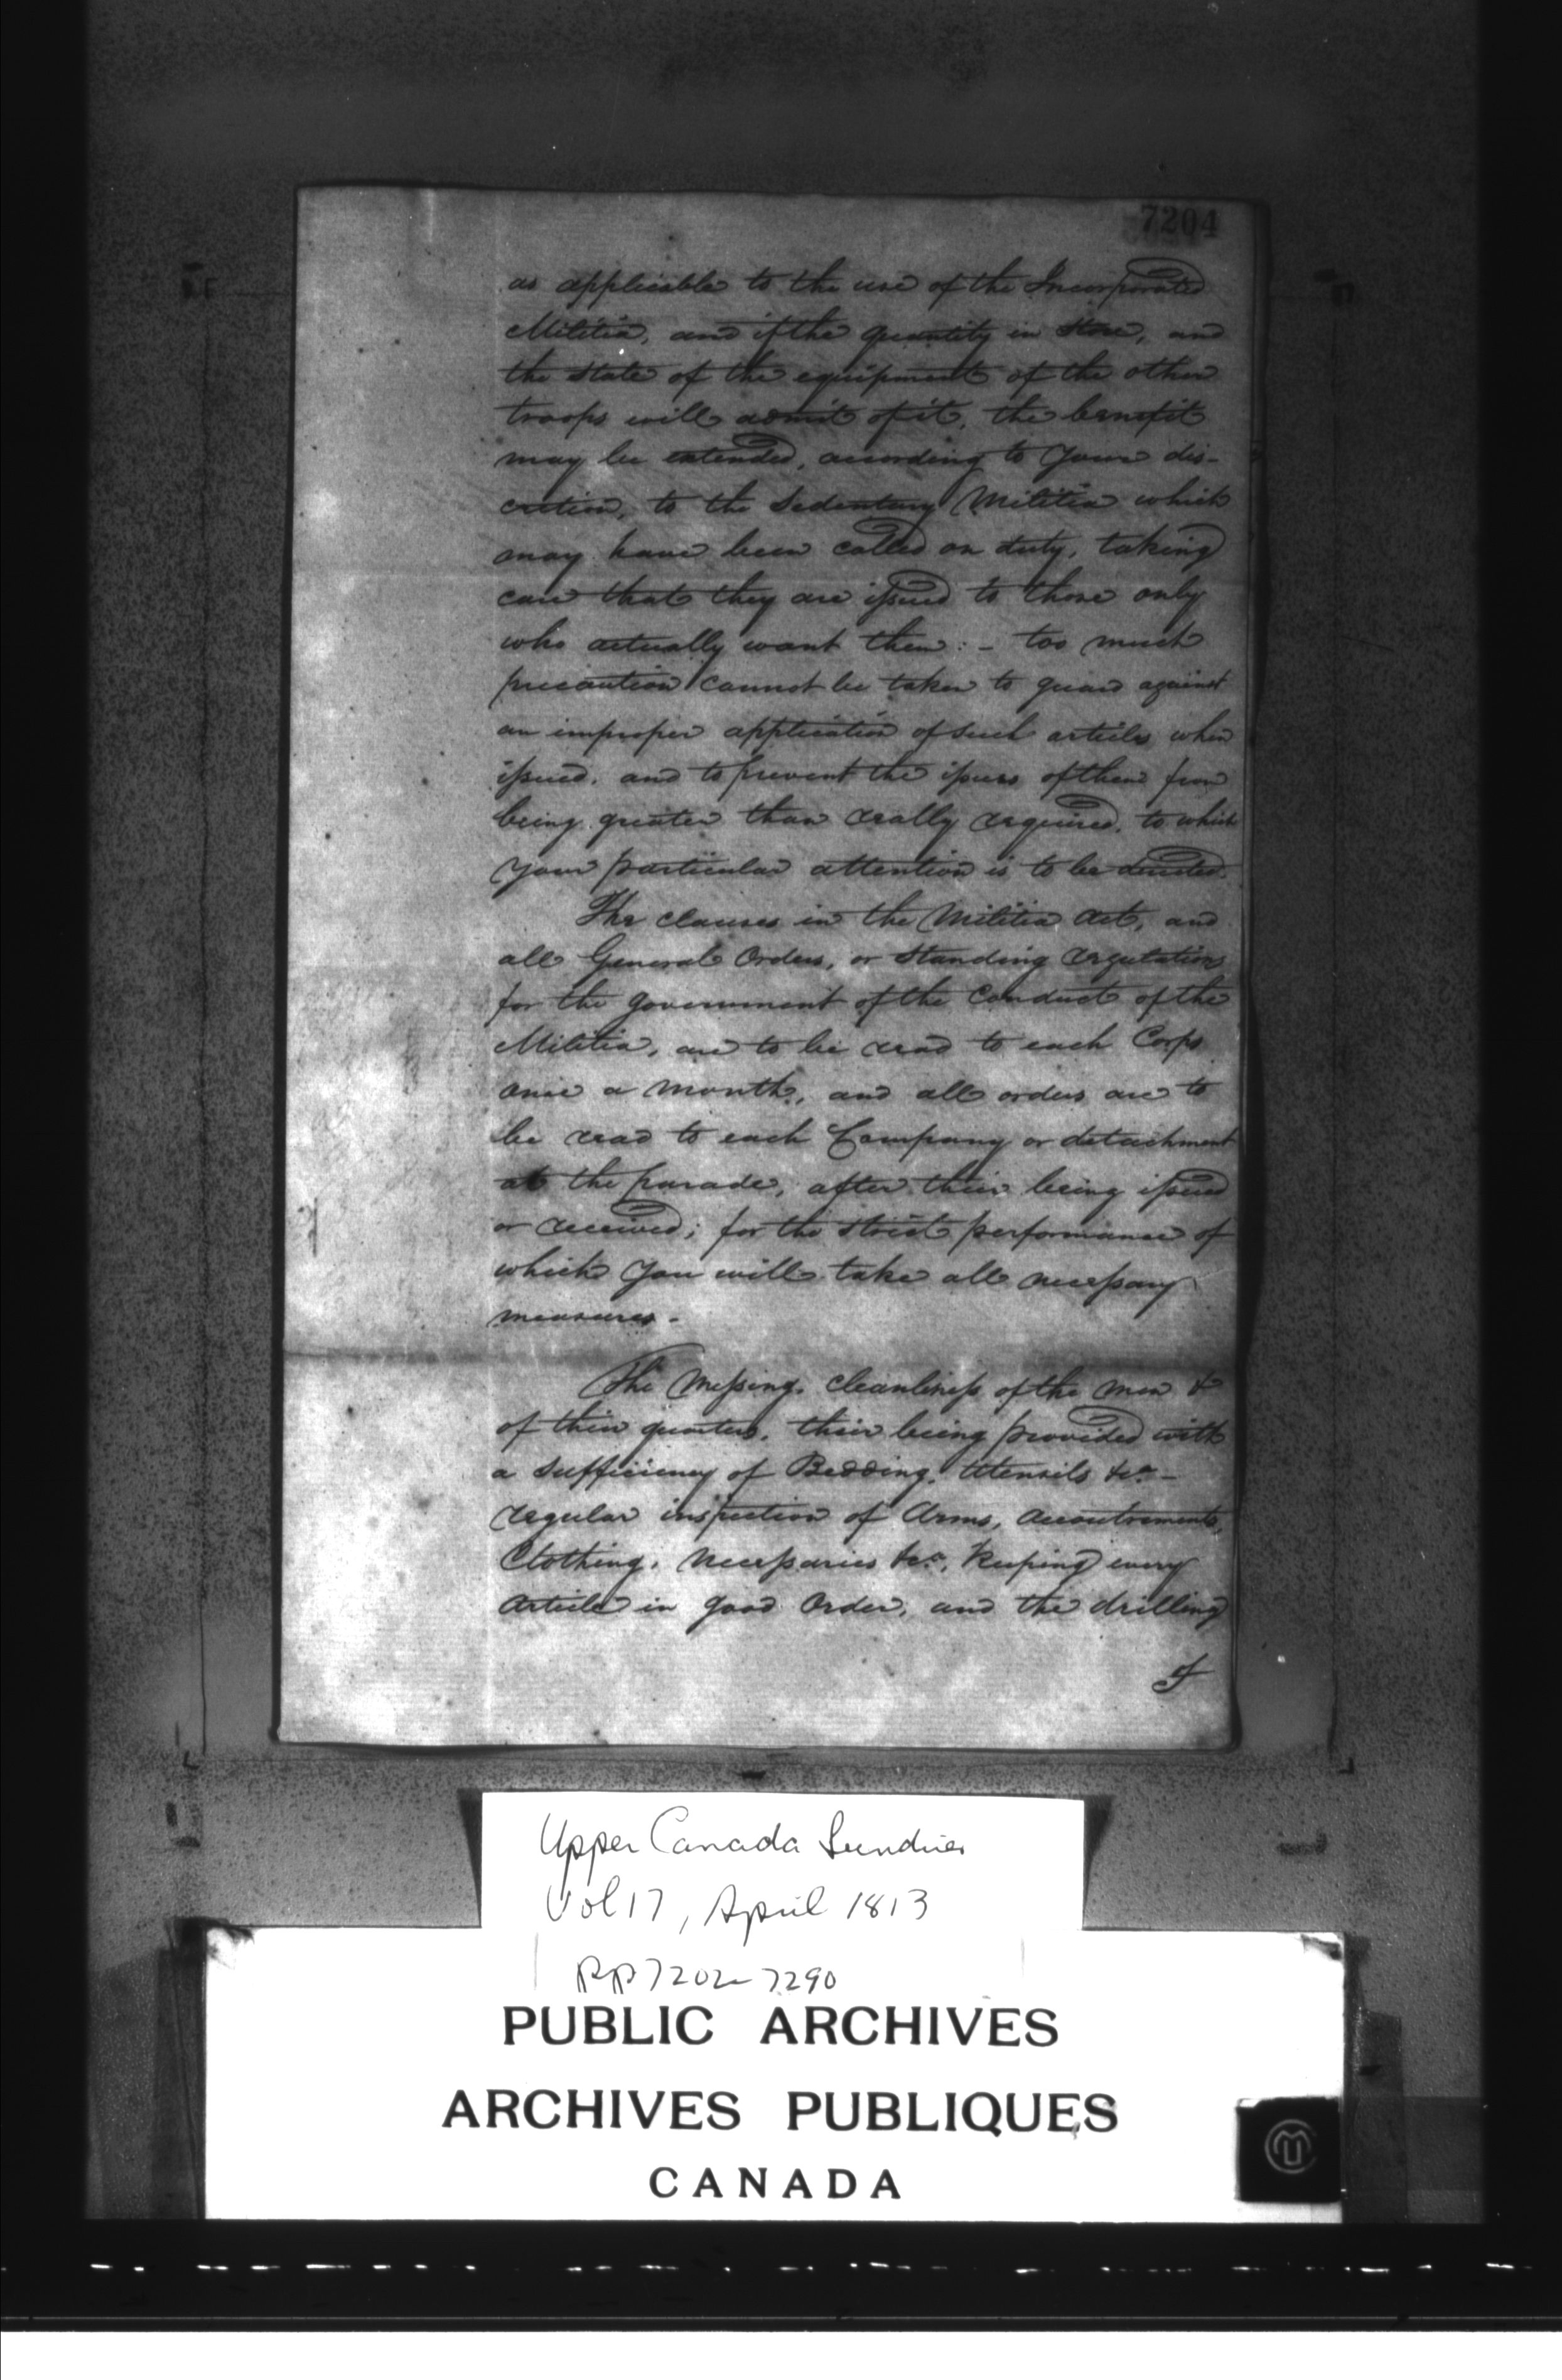 7204
as applicable to the use of the Incorporated
Militia, and if the quantity in Store, and
the state of the equipment of the other
troops will admit of it, the benefit
may be extended, according to Your dis-
cretion, to the Sedentary Militia which
may have been called on duty, taking
care that they are issued to those only
who actually want them: - too much
precaution cannot be taken to guard against
an improper application of such articles when
issued, and to prevent the issues of them from
being greater than really required, to which
Your particular attention is to be directed.
The clauses in the Militia Act, and
all General Orders, or Standing regulations
for the government of the Conduct of the
Militia, are to be read to each Corps
once a month, and all orders are to
be read to each Company or detachment
at the parade, after their being issued
or received; for the strict performance of
which You will take all necessary
measures -
The Messing, cleanliness of the men &
of their quarters, their being provided with
a sufficiency of Bedding, Utensils &c. -
regular inspection of Arms, Accoutrements,
Clothing, Necessaries &c., Keeping every
Article in good Order, and the drilling
of
Upper Canada Sundries
Vol 17, April 1813
pp 7202-7290
PUBLIC ARCHIVES
ARCHIVES PUBLIQUES
CANADA